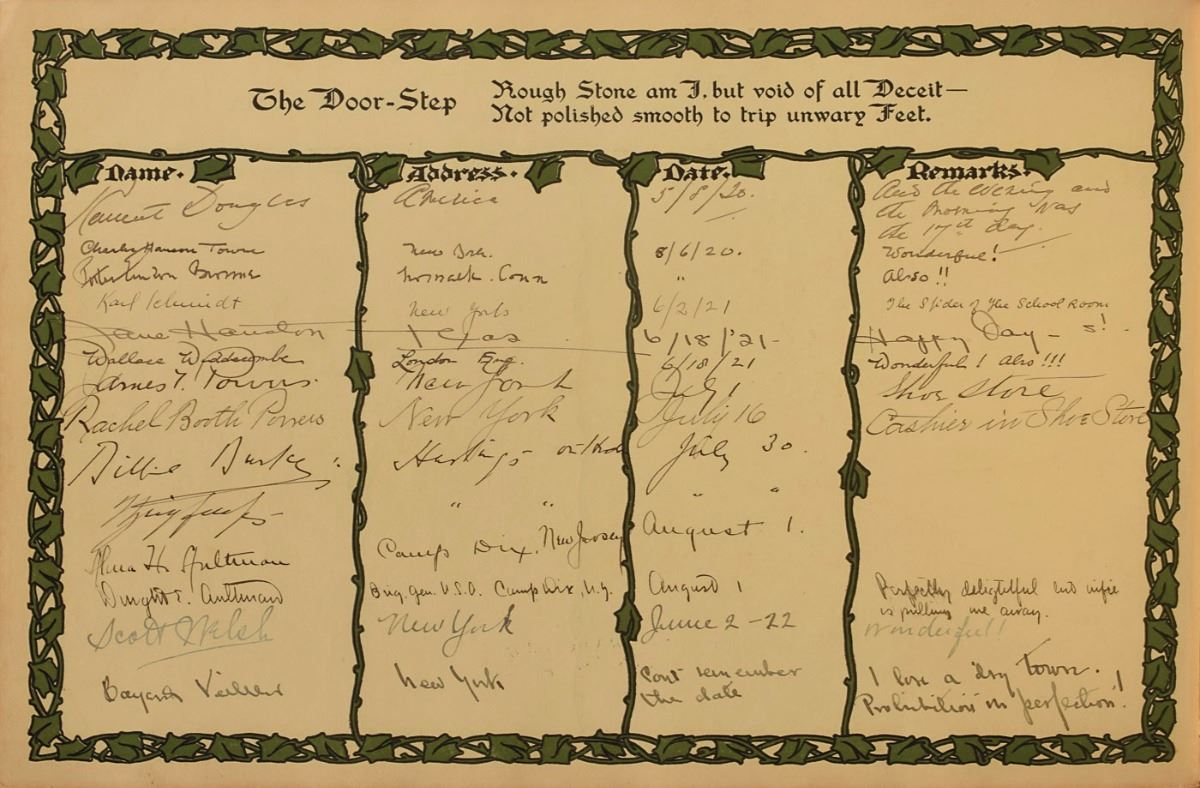 The Door-Step
Rough Stone am I, but void of all Deceit—
Not polished smooth to trip unwary Feet.
Name. Address. Date. Remarks.
Douglas America 5/8/20. And the evening and
the morning was
the 17th day.
Charles Hanson Towne New York. 8/6/20. Wonderful!
Browne Norwalk. Conn " Also!!
Karl Schmidt New York 6/2/21 The Spider of the School Room
Jane Houston Texas 6/18/'21- Happy Day - s!
Wallace London Eng. 6/18/21 Wonderful! Also!!!
James T. Powers. New York July Shoe Store
Rachel Booth Powers New York July 16 Cashier in Shoe Store
Billie Burke Hastings on Hud July 30.
" " " "
Alma H. Aultman Camp Dix, New Jersey August 1.
Dwight E. Aultman Brig. Gen. U.S.A. Camp Dix, N.J. August 1 Perfectly delightful and wifie
is pulling me away.
Scott Welsh New York June 2-22 Wonderful!!
Bayard Veiller New York Can't remember
the date I love a dry town.
Prohibition in perfection!